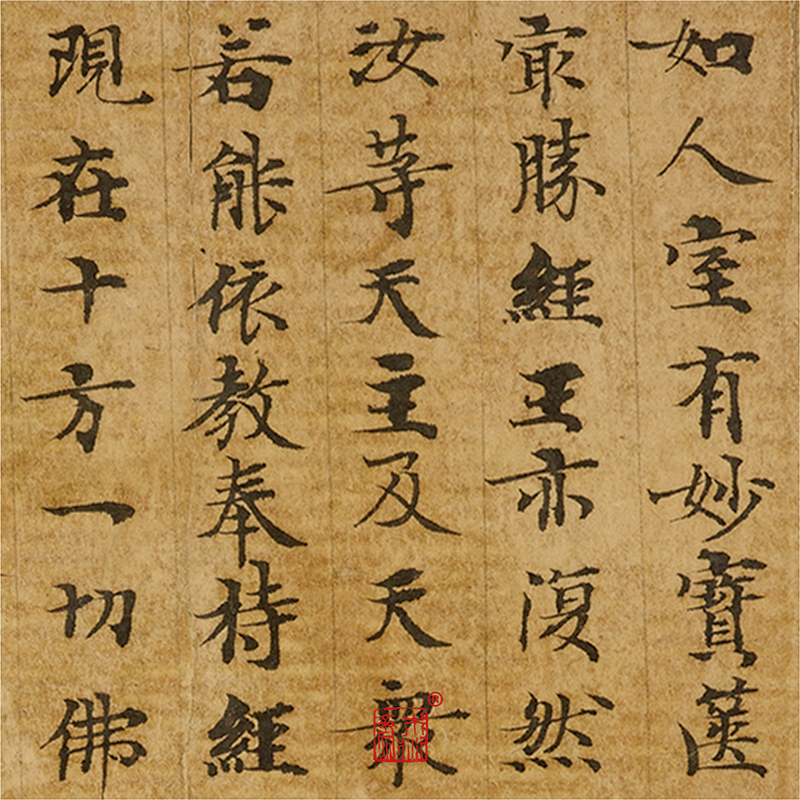 如人室有妙寶篋
冣勝經王亦復然
汝等天主及天衆
若能依教奉持經
現在十方一切佛